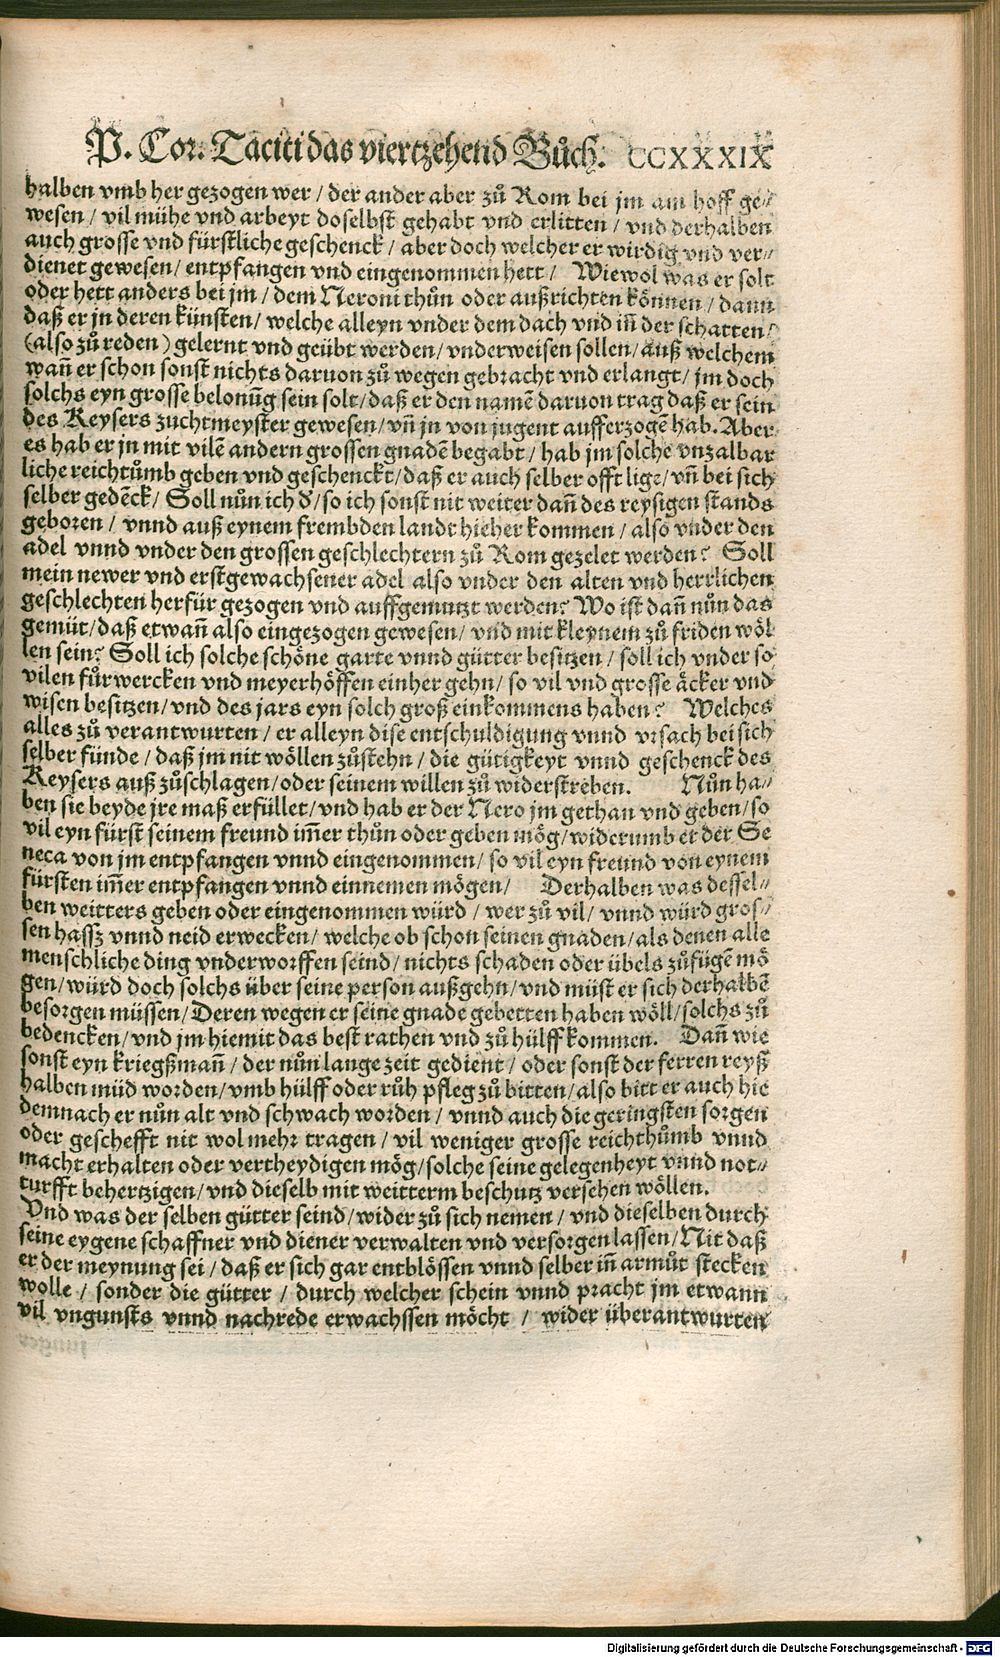 P. Cor. Taciti das viertzehend Bůch. CCXXXIX
halben vmb her gezogen wer / der ander aber zů Rom bei jm am hoff ge⸗
wesen / vil mühe vnd arbeyt doselbst gehabt vnd erlitten / vnd derhalben
auch grosse vnd fürstliche geschenck / aber doch welcher er wirdig vnd ver⸗
dienet gewesen / entpfangen vnd eingenommen hett / Wiewol was er solt
oder hett anders bei jm / dem Neroni thůn oder außrichten können / dann
daß er jn deren künsten / welche alleyn vnder dem dach vnd iñ der schatten /
(also zů reden) gelernt vnd geübt werden / vnderweisen sollen / auß welchem
wañ er schon sonst nichts daruon zů wegen gebracht vnd erlangt / jm doch
solchs eyn grosse belonũg sein solt / daß er den namẽ daruon trag daß er sein
des Keysers zuchtmeyster gewesen / vñ jn von jugent aufferzogẽ hab. Aber
es hab er jn mit vilẽ andern grossen gnadẽ begabt / hab jm solche vnzalbar
liche reichtůmb geben vnd geschenckt / daß er auch selber offt lige / vñ bei sich
selber gedẽck / Soll nůn ich d̕ / so ich sonst nit weiter dañ des reysigen stands
geboren / vnnd auß eynem frembden landt hieher kommen / also vnder den
adel vnnd vnder den grossen geschlechtern zů Rom gezelet werden? Soll
mein newer vnd erstgewachsener adel also vnder den alten vnd herrlichen
geschlechten herfür gezogen vnd auffgemutzt werden? Wo ist dañ nůn das
gemüt / daß etwañ also eingezogen gewesen / vnd mit kleynem zů friden wöl
len sein? Soll ich solche schöne garte vnnd gütter besitzen / soll ich vnder so
vilen fůrwercken vnd meyerhöffen einher gehn / so vil vnd grosse äcker vnd
wisen besitzen / vnd des jars eyn solch groß einkommens haben? Welches
alles zů verantwurten / er alleyn dise entschuldigung vnnd vrsach bei sich
selber fünde / daß jm nit wöllen zůstehn / die gütigkeyt vnnd geschenck des
Keysers auß zůschlagen / oder seinem willen zů widerstreben. Nůn ha⸗
ben sie beyde jre maß erfüllet / vnd hab er der Nero jm gethan vnd geben / so
vil eyn fürst seinem freund im̃er thůn oder geben mög / widerumb er der Se
neca von jm entpfangen vnnd eingenommen / so vil eyn freund von eynem
fürsten im̃er entpfangen vnnd einnemen mögen / Derhalben was dessel⸗
ben weitters geben oder eingenommen würd / wer zů vil / vnnd würd gros⸗
sen hassz vnnd neid erwecken / welche ob schon seinen gnaden / als denen alle
menschliche ding vnderworffen seind / nichts schaden oder übels zůfügẽ mö
gen / würd doch solchs über seine person außgehn / vnd müst er sich derhalbẽ
besorgen müssen / Deren wegen er seine gnade gebetten haben wöll / solchs zů
bedencken / vnd jm hiemit das best rathen vnd zů hülff kommen. Dañ wie
sonst eyn kriegßmañ / der nůn lange zeit gedient / oder sonst der ferren reyß
halben müd worden / vmb hülff oder růh pfleg zů bitten / also bitt er auch hie
demnach er nůn alt vnd schwach worden / vnnd auch die geringsten sorgen
oder geschefft nit wol mehr tragen / vil weniger grosse reichthůmb vnnd
macht erhalten oder vertheydigen mög / solche seine gelegenheyt vnnd not⸗
turfft behertzigen / vnd dieselb mit weitterm beschutz versehen wöllen.
Vnd was der selben gütter seind / wider zů sich nemen / vnd dieselben durch
seine eygene schaffner vnd diener verwalten vnd versorgen lassen / Nit daß
er der meynung sei / daß er sich gar entblössen vnnd selber iñ armůt stecken
wolle / sonder die gütter / durch welcher schein vnnd pracht jm etwann
vil vngunsts vnnd nachrede erwachssen möcht / wider überantwurten
Digitalisierung gefördert durch die Deutsche Forschungsgemeinschaft - DFG